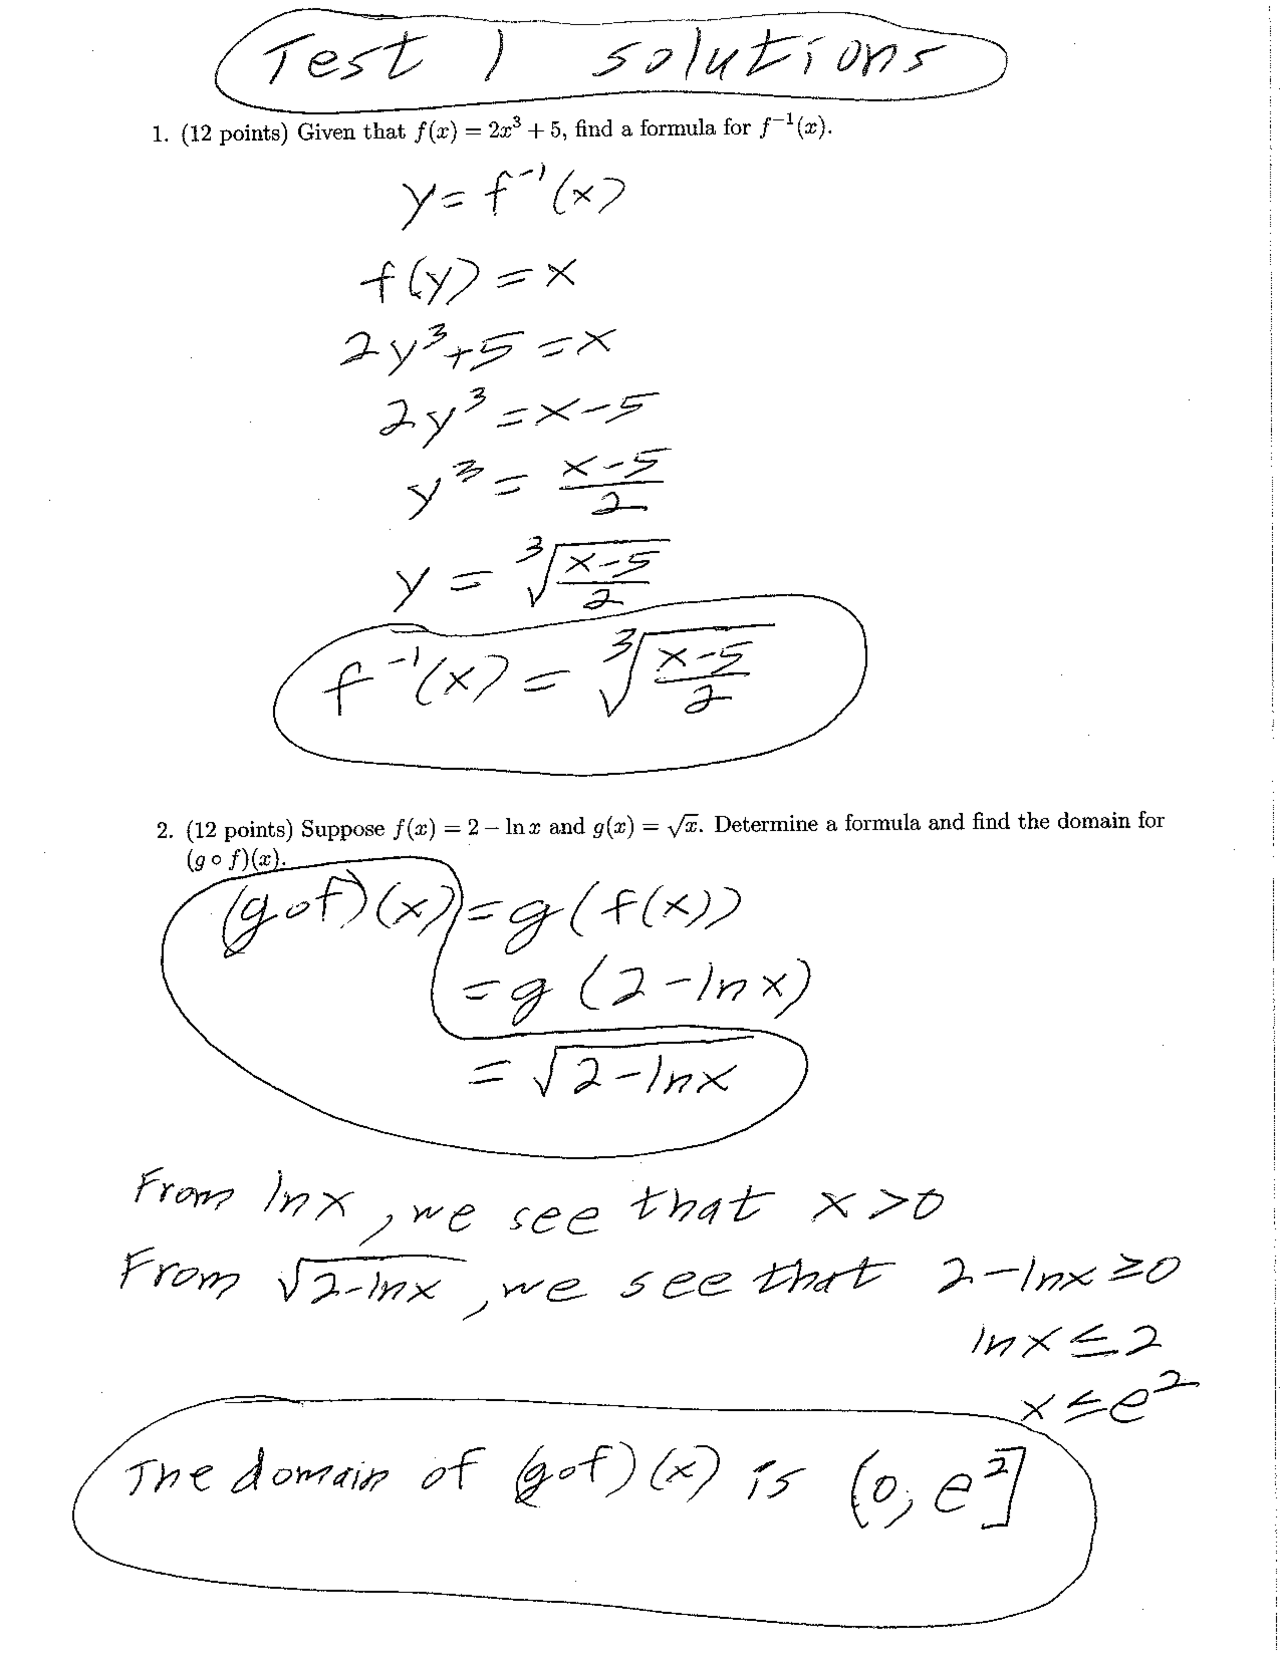 Test 1 solutions
1. (12 points) Given that f(x) = 2x³ + 5, find a formula for f⁻¹(x).
y = f⁻¹(x)
f(y) = x
2y³+5 = x
2y³ = x-5
y³ = (x-5)/2
y = ∛((x-5)/2)
f⁻¹(x) = ∛((x-5)/2)
2. (12 points) Suppose f(x) = 2 − ln x and g(x) = √x. Determine a formula and find the domain for
(g ∘ f)(x).
(g∘f)(x) = g(f(x))
= g(2-lnx)
= √(2-lnx)
From lnx, we see that x>0
From √(2-lnx), we see that 2-lnx ≥0
lnx ≤ 2
x ≤ e²
The domain of (g∘f)(x) is (0, e²]